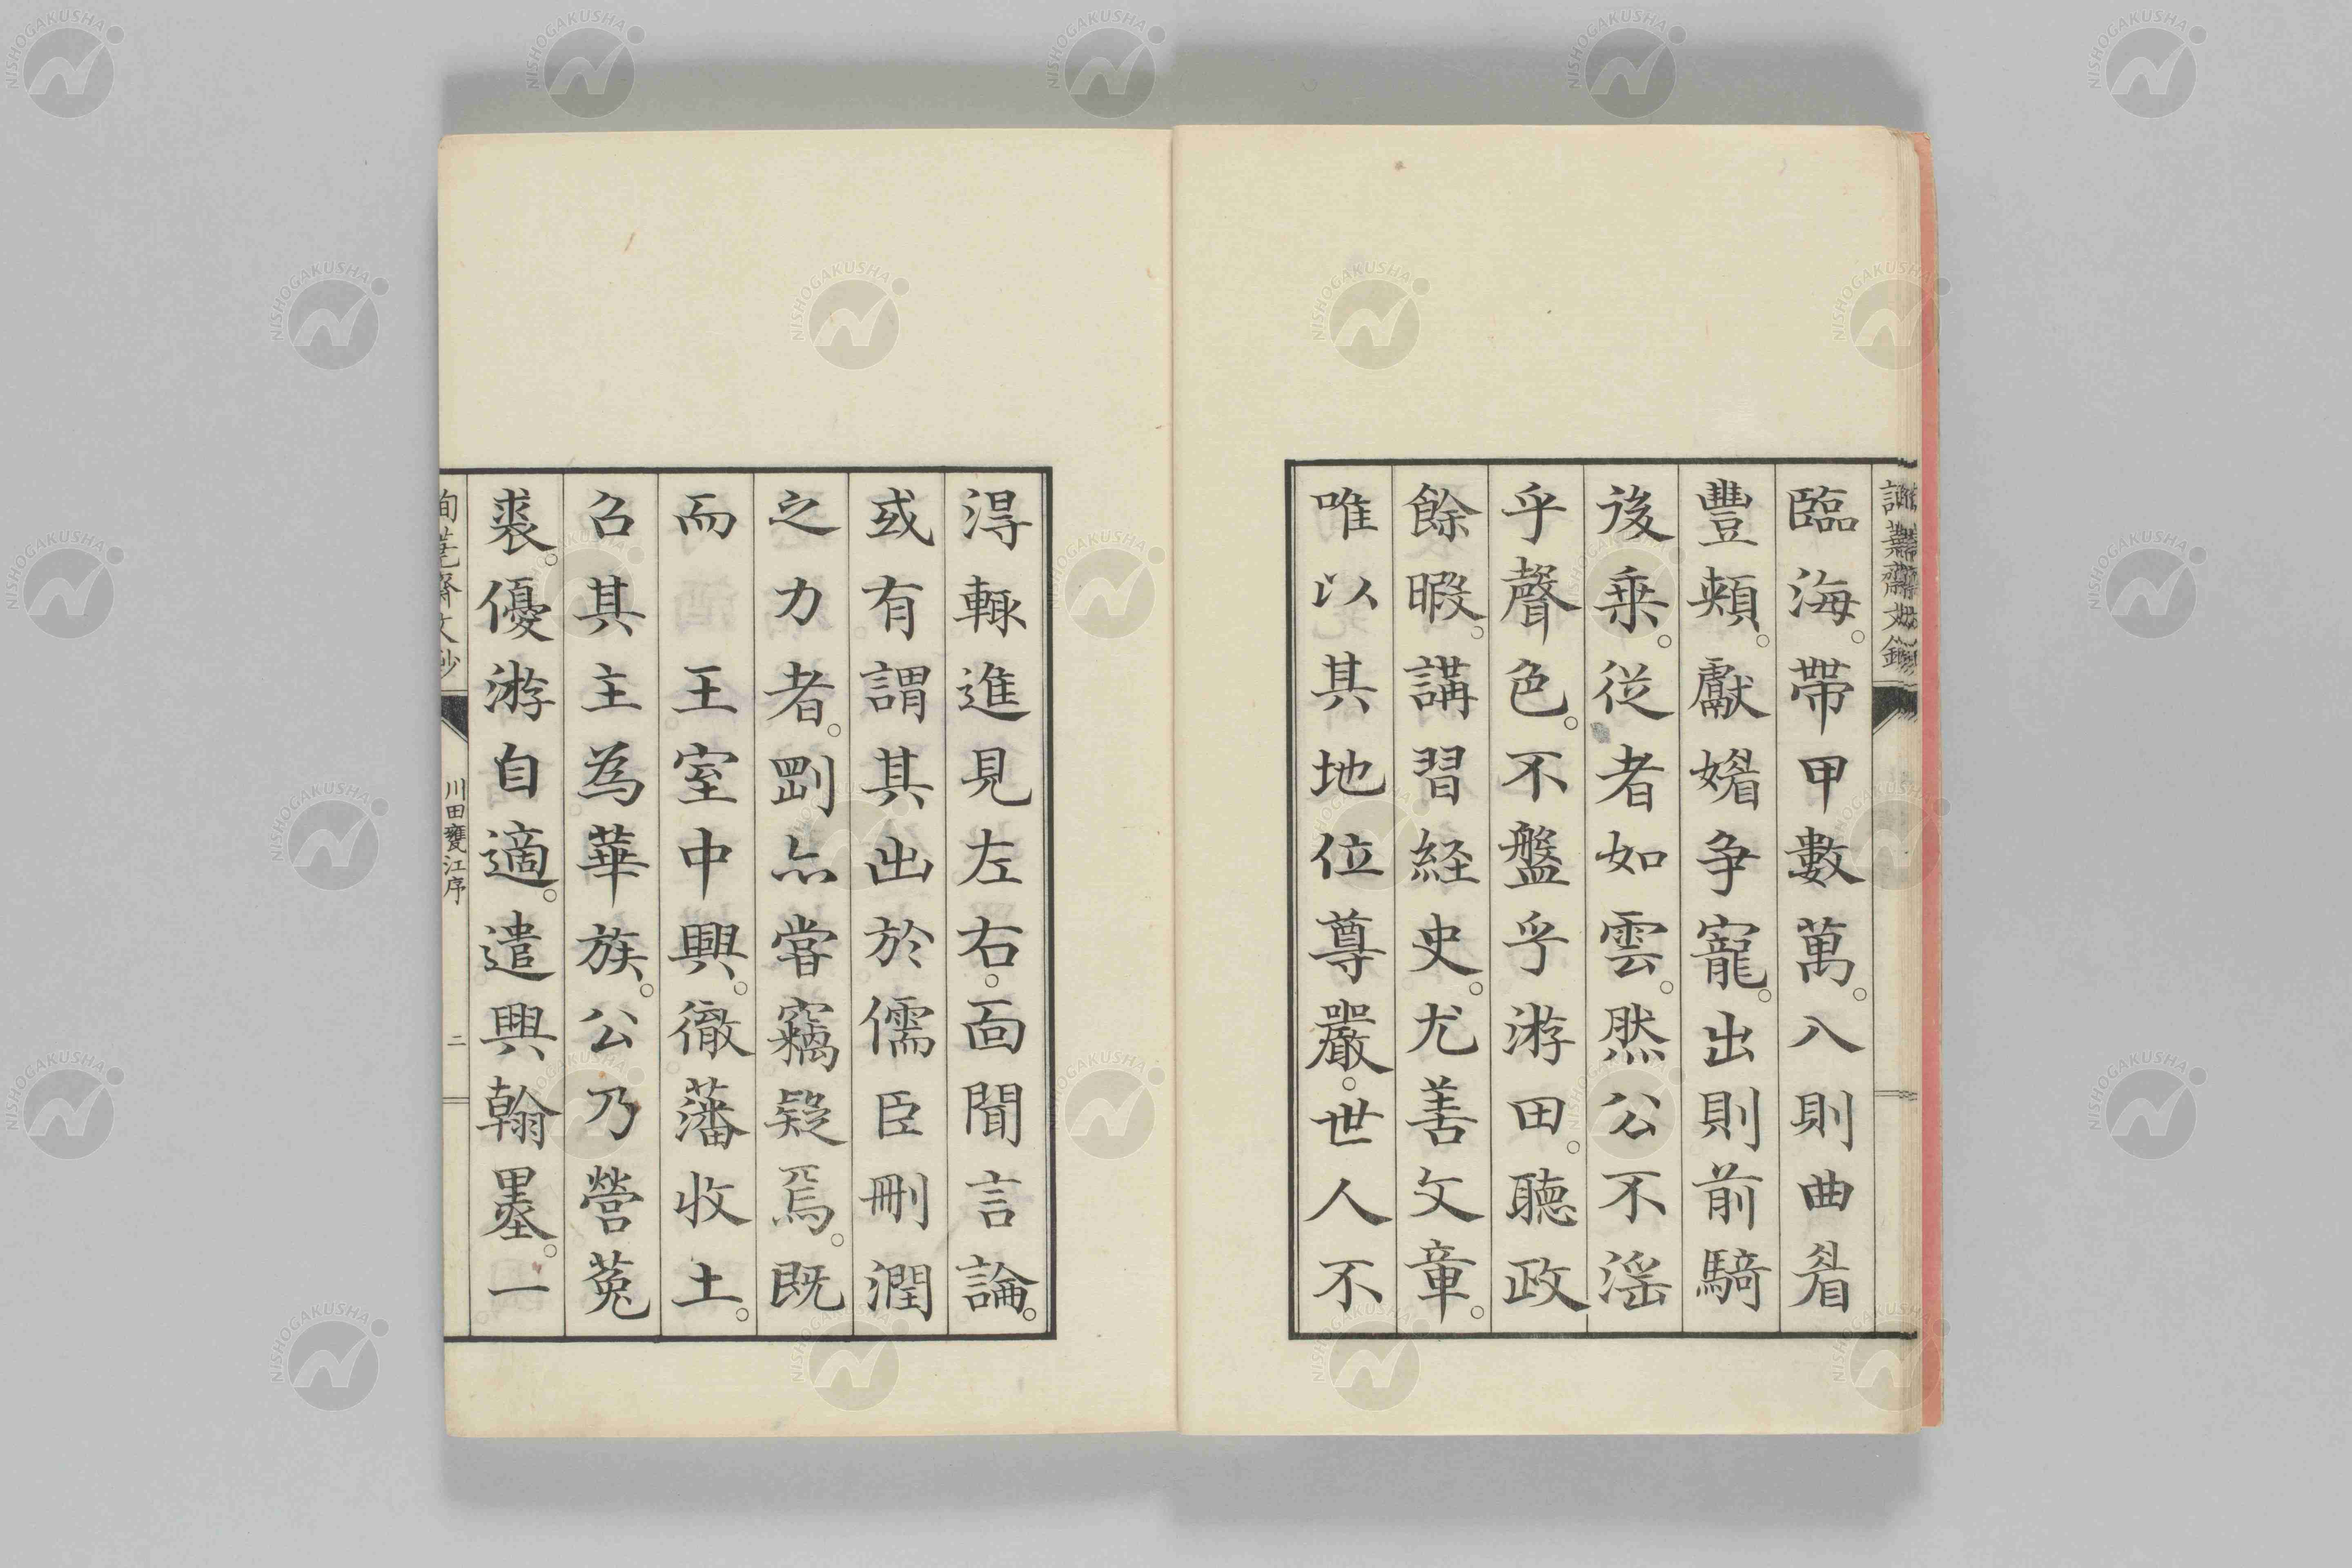 臨海。帶甲數萬。入則曲眉
豐頰。獻媚争寵。出則前騎
後乗。從者如雲。然公不淫
乎聲色。不盤乎游田。聽政
餘暇。講習経史。尤善文章。
唯以其地位尊嚴。世人不
得輙進見左右。面聞言論。
或有謂其出於儒臣刪潤
之力者。剛亦嘗竊疑焉。既
而王室中興。徹藩收土。
名其主為華族。公乃營菟
裘。優游自適。遣興翰墨。一
川田甕江序
二
NISHOGAKUSHA